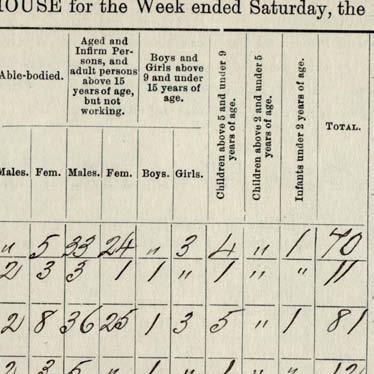 HOUSE for the Week ended Saturday, the
Able-bodied.
Aged and
Infirm Per-
sons, and
adult persons
above 15
years of age,
but not
working.
Boys and
Girls above
9 and under
15 years of
age.
Children above 5 and under 9
years of age.
Children above 2 and under 5
years of age.
Infants under 2 years of age.
TOTAL.
Males. Fem. Males. Fem. Boys. Girls.
" 5 33 24 " 3 4 " 1 70
2 3 3 1 1 " 1 " " 11
2 8 36 25 1 3 5 " 1 81
2 3 5 " 1 " 1 " "